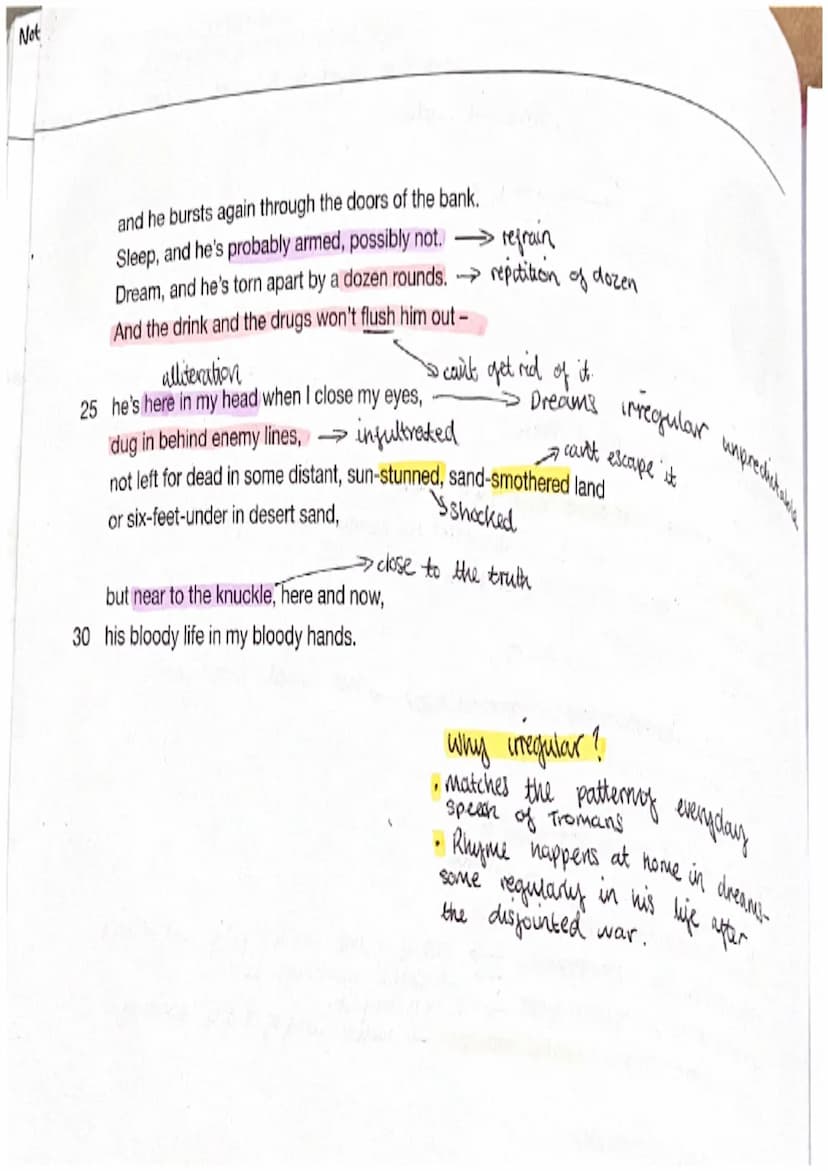 Not
and he bursts again through the doors of the bank.
Sleep, and he's probably armed, possibly not. → refrain
Dream, and he's torn apart by a dozen rounds. → repitition of dozen
And the drink and the drugs won't flush him out –
alliteration
can't get rid of it.
25 he's here in my head when I close my eyes, → Dreams irregular unpredictable
dug in behind enemy lines, → infultrated
can't escape it
not left for dead in some distant, sun-stunned, sand-smothered land
or six-feet-under in desert sand,
shocked
close to the truth
but near to the knuckle, here and now,
30 his bloody life in my bloody hands.
Why irregular?
• Matches the pattern of everyday
speech of Tromans
• Rhyme happens at home in dreams-
some regularly in his life after
the disjointed war.